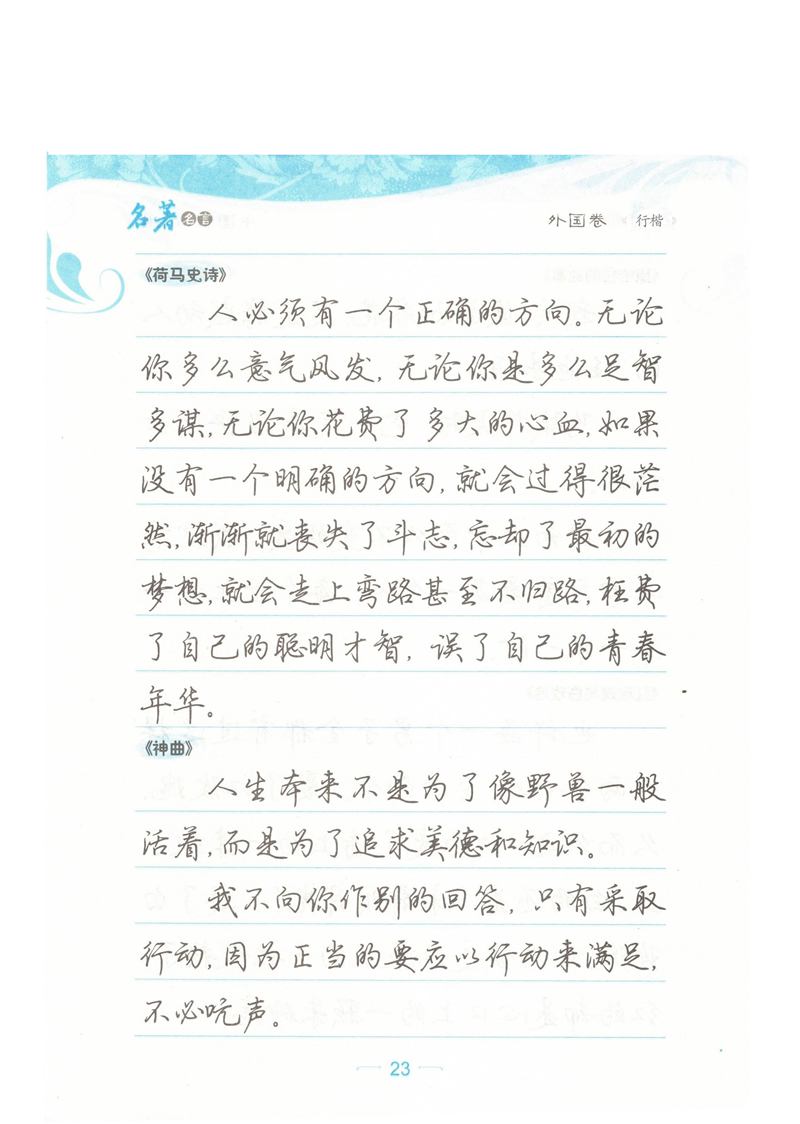 名著名言
外国卷 行楷
《荷马史诗》
人必须有一个正确的方向。无论
你多么意气风发,无论你是多么足智
多谋,无论你花费了多大的心血,如果
没有一个明确的方向,就会过得很茫
然,渐渐就丧失了斗志,忘却了最初的
梦想,就会走上弯路甚至不归路,枉费
了自己的聪明才智,误了自己的青春
年华。
《神曲》
人生本来不是为了像野兽一般
活着,而是为了追求美德和知识。
我不向你作别的回答,只有采取
行动,因为正当的要应以行动来满足,
不必吭声。
23